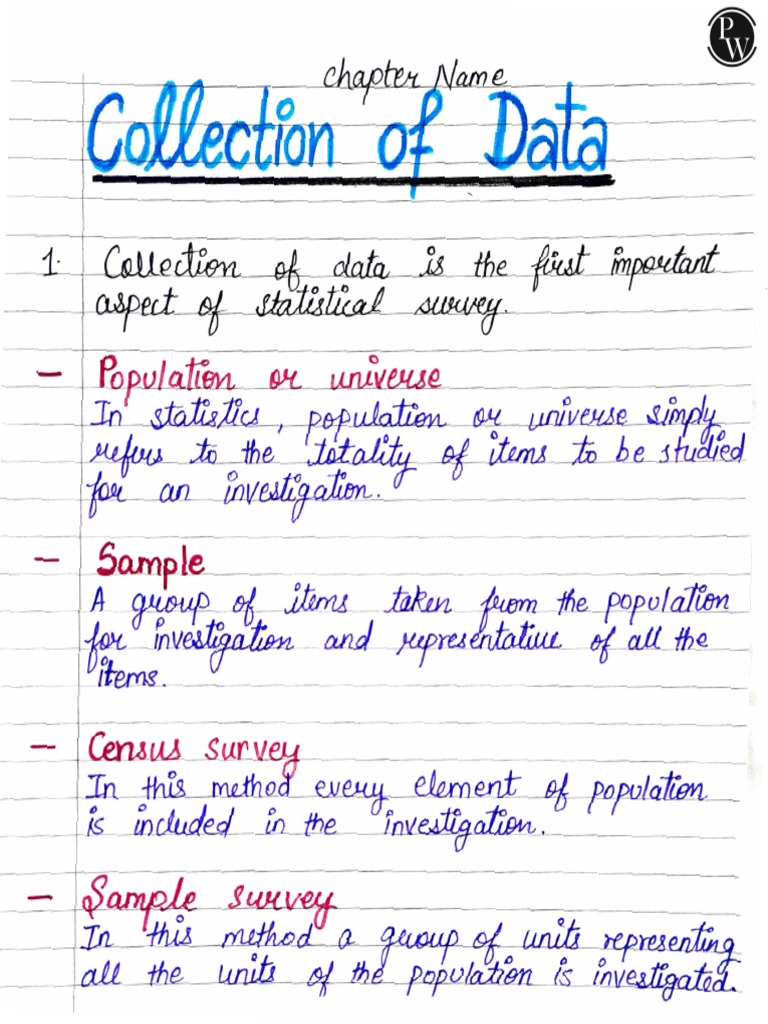 PW
Chapter Name
Collection of Data
1. Collection of data is the first important
aspect of statistical survey.
- Population or universe
In statistics, population or universe simply
refers to the totality of items to be studied
for an investigation.
- Sample
A group of items taken from the population
for investigation and representative of all the
items.
- Census survey
In this method every element of population
is included in the investigation.
- Sample survey
In this method a group of units representing
all the units of the population is investigated.